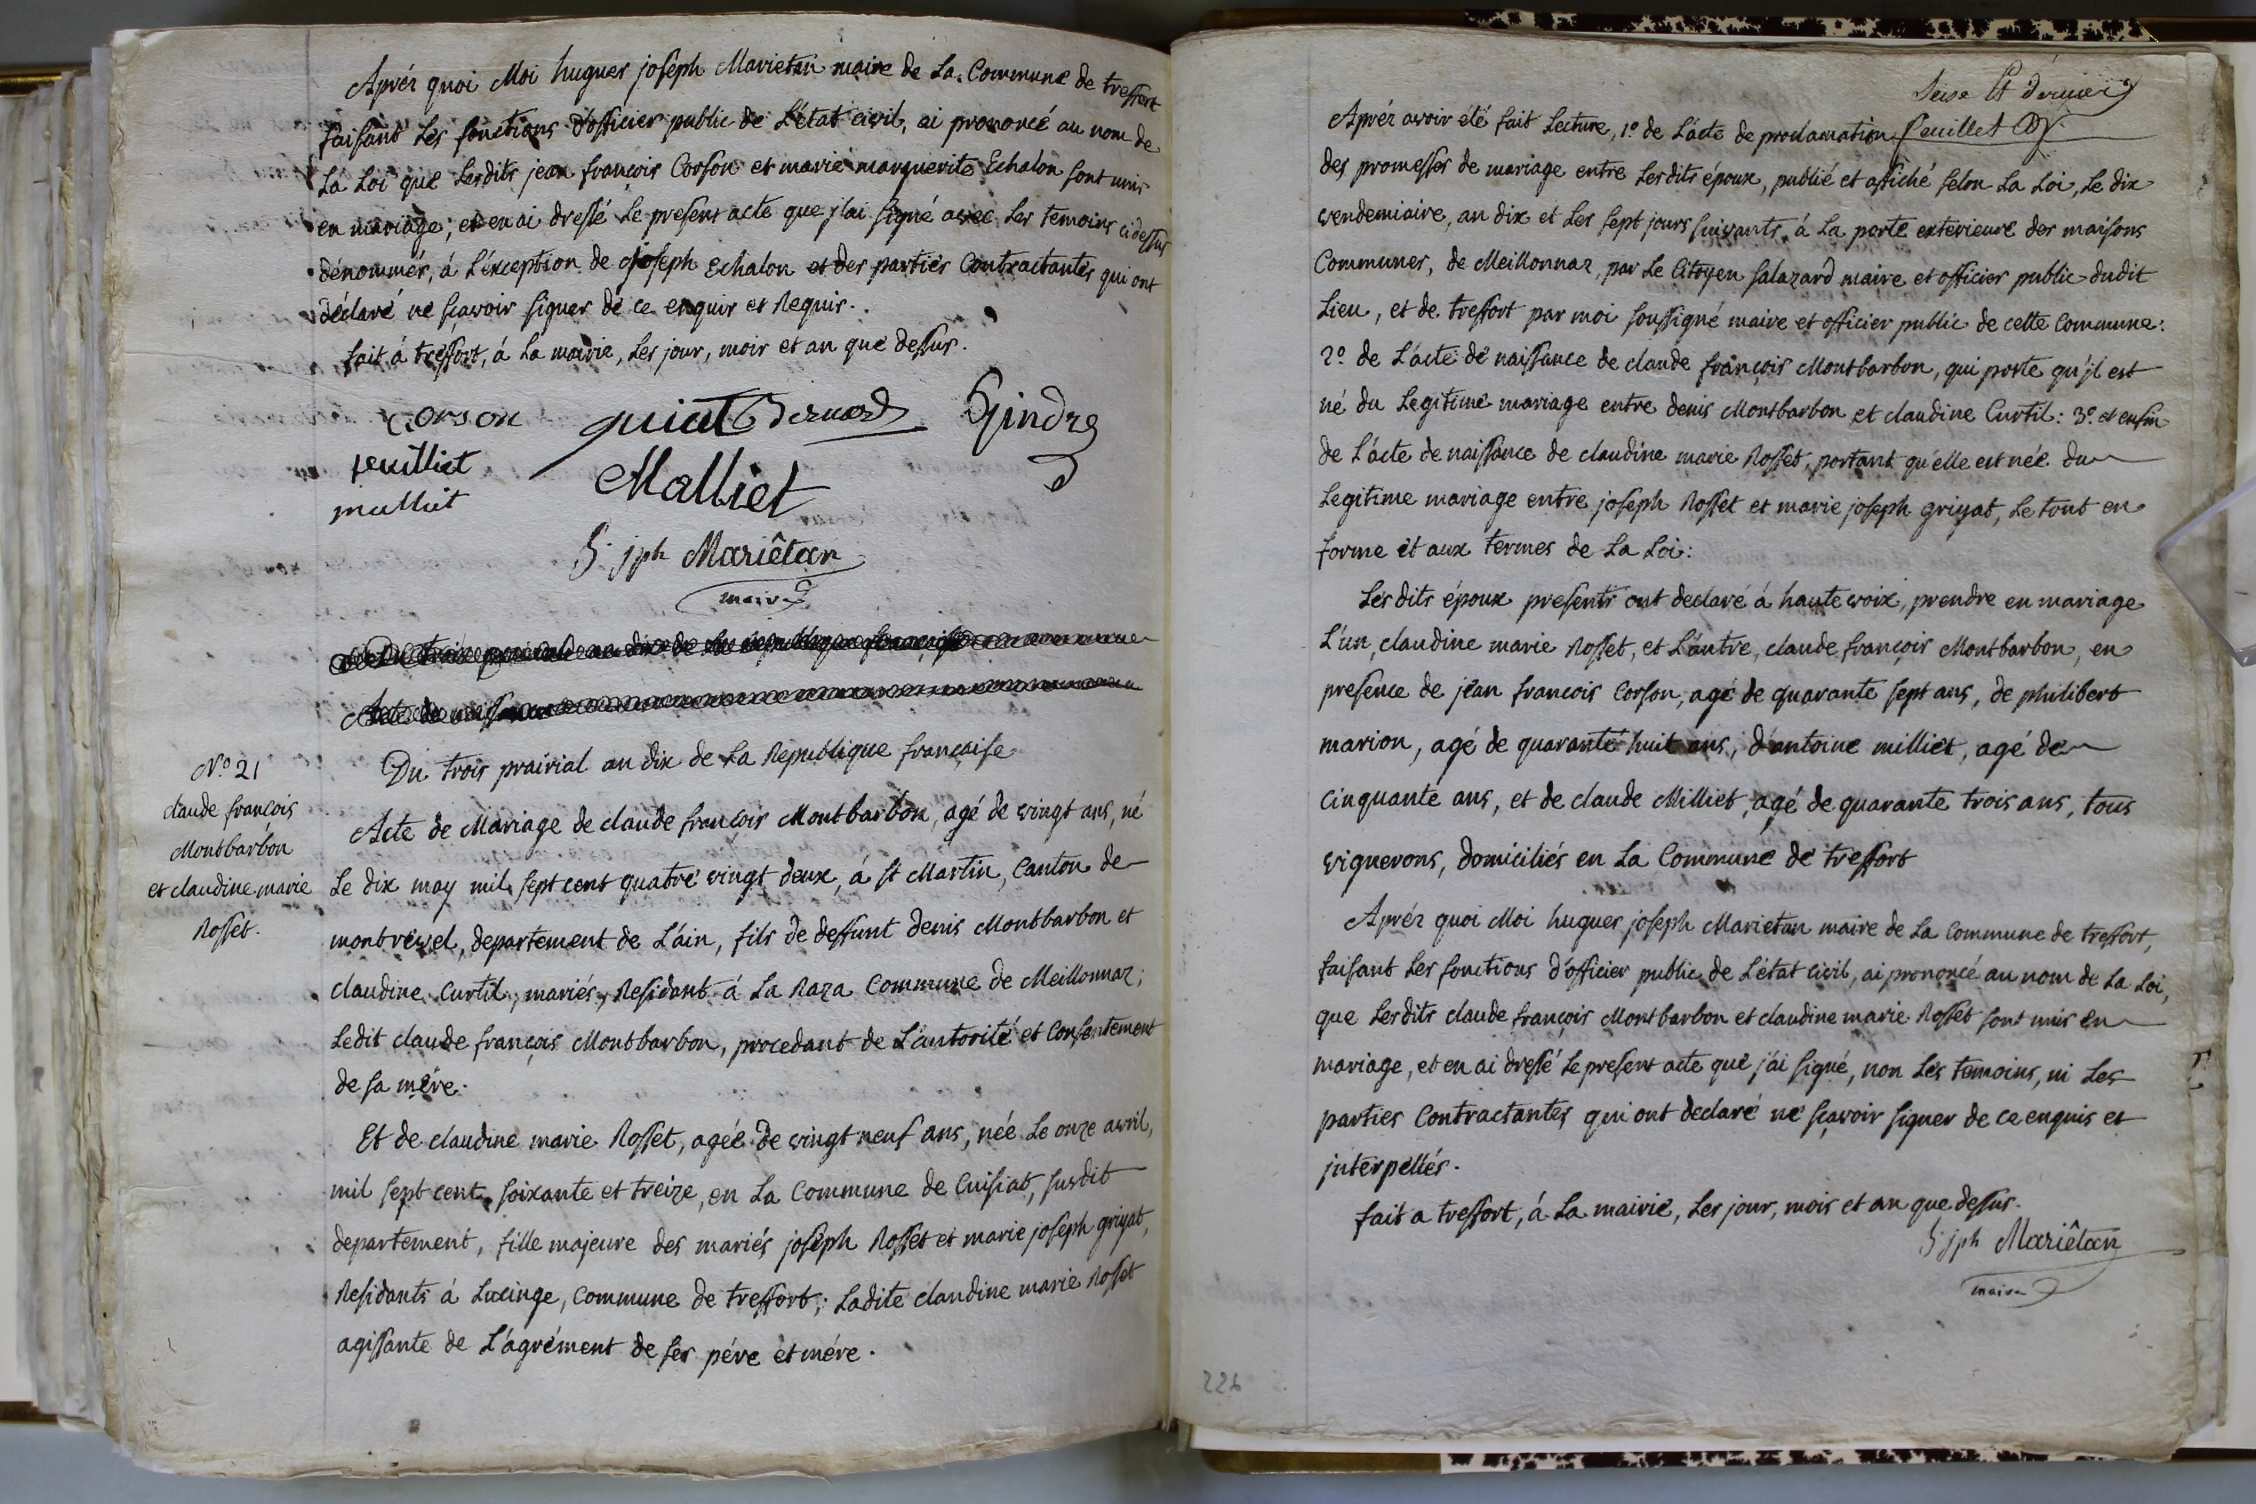 Aprés quoi Moi hugues joseph Marietan maire de La Commune de treffort
faisant Les fonctions d'officier public de L'état civil, ai prononcé au nom de
La Loi que Lesdits jean françois Corson et marie marguerite Echalon sont unis
en mariage; et en ai dressé Le present acte que j'ai signé avec Les temoins cidessus
dénommés, á L'exception de joseph Echalon et des parties Contractantes qui ont
déclaré ne sçavoir signer de ce enquis et Requis.
fait á treffort, á La mairie, Les jour, mois et an que dessus.
Corson quiat Bernard Gindre
feuilliet
Malliet
mulliet
h. jph Mariêtan
maire
Du trois prairial an dix de La republique française
Acte de
Du trois prairial an dix de La Republique française
N.º 21
claude françois
Montbarbon
et claudine marie
Rosset.
Acte de Mariage de claude françois Montbarbon, agé de vingt ans, né
Le dix may mil sept cent quatre vingt deux, á st Martin, Canton de
montrevel, departement de L'áin, fils de deffunt denis Montbarbon et
claudine Curtil, mariés, Residant á La Raza Commune de Meillonnaz;
Ledit claude françois Montbarbon, procedant de L'autorité et Consentement
de sa mére.
Et de claudine marie Rosset, agée de vingt neuf ans, née Le onze avril,
mil sept cent soixante et treize, en La Commune de Cuisiat, susdit
departement, fille majeure des mariés joseph Rosset et marie joseph griyat,
Residants á Lucinge, Commune de treffort; Ladite claudine marie Rosset
agissante de L'agrément de ses pére et mére.
Seise et dernier
feuillet
Aprés avoir été fait Lecture, 1.º de L'acte de proclamation
des promesses de mariage entre Lesdits époux, publié et affiché selon La Loi, Le dix
vendemiaire, an dix et Les sept jours suivants, á La porte exterieure des maisons
Communes, de Meillonnaz, par Le Citoyen salazard maire et officier public dudit
Lieu, et de treffort par moi soussigné maire et officier public de cette Commune:
2.º de L'acte de naissance de claude françois Montbarbon, qui porte qu'jl est
né du Legitime mariage entre denis Montbarbon et claudine Curtil: 3.º et enfin
de L'acte de naissance de claudine marie Rosset, portant qu'elle est née du
Legitime mariage entre joseph Rosset et marie joseph griyat, Le tout en
forme et aux termes de La Loi:
Lesdits époux presents ont declaré á haute voix, prendre en mariage
L'un, claudine marie Rosset, et L'autre, claude françois Montbarbon, en
presence de jean francois Corson, agé de quarante sept ans, de philibert
marion, agé de quarante huit ans, d'antoine milliet, agé de
cinquante ans, et de claude Milliet, agé de quarante trois ans, tous
vignerons, domiciliés en La Commune de treffort
Aprés quoi Moi hugues joseph Marietan maire de La Commune de treffort,
faisant Les fonctions d'officier public de L'état civil, ai prononcé au nom de La Loi,
que Lesdits claude françois Montbarbon et claudine marie Rosset sont unis en
mariage, et en ai dressé Le present acte que j'ai signé, non Les temoins, ni Les
parties Contractantes qui ont declaré ne sçavoir signer de ce enquis et
jnterpellés.
fait a treffort, á La mairie, Les jour, mois et an que dessus.
h. jph Mariêtan
maire
226